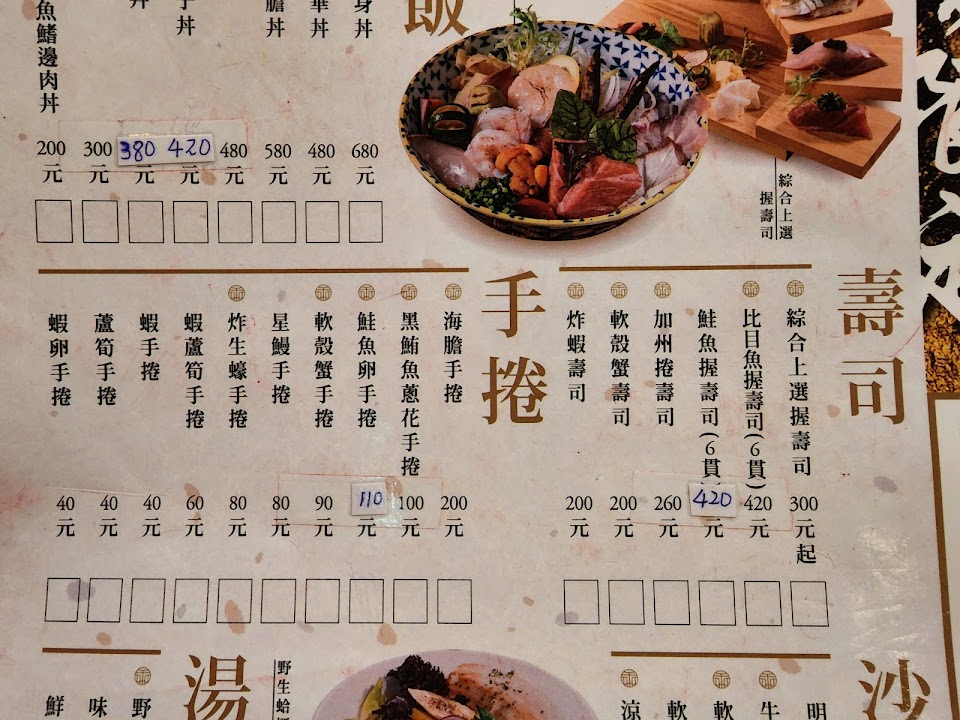 飯
身丼
680元
華丼
480元
膽丼
580元
480元
丼
420元
丼
380元
300元
魚鰭邊肉丼
200元
綜合上選
握壽司
壽司
綜合上選握壽司
300元起
比目魚握壽司(6貫)
420元
鮭魚握壽司(6貫)
420元
加州捲壽司
260元
軟殼蟹壽司
200元
炸蝦壽司
200元
手捲
海膽手捲
200元
黑鮪魚蔥花手捲
100元
鮭魚卵手捲
110元
軟殼蟹手捲
90元
星鰻手捲
80元
炸生蠔手捲
80元
蝦蘆筍手捲
60元
蝦手捲
40元
蘆筍手捲
40元
蝦卵手捲
40元
沙
明
牛
軟
軟
涼
野生蛤
湯
野
味
鮮